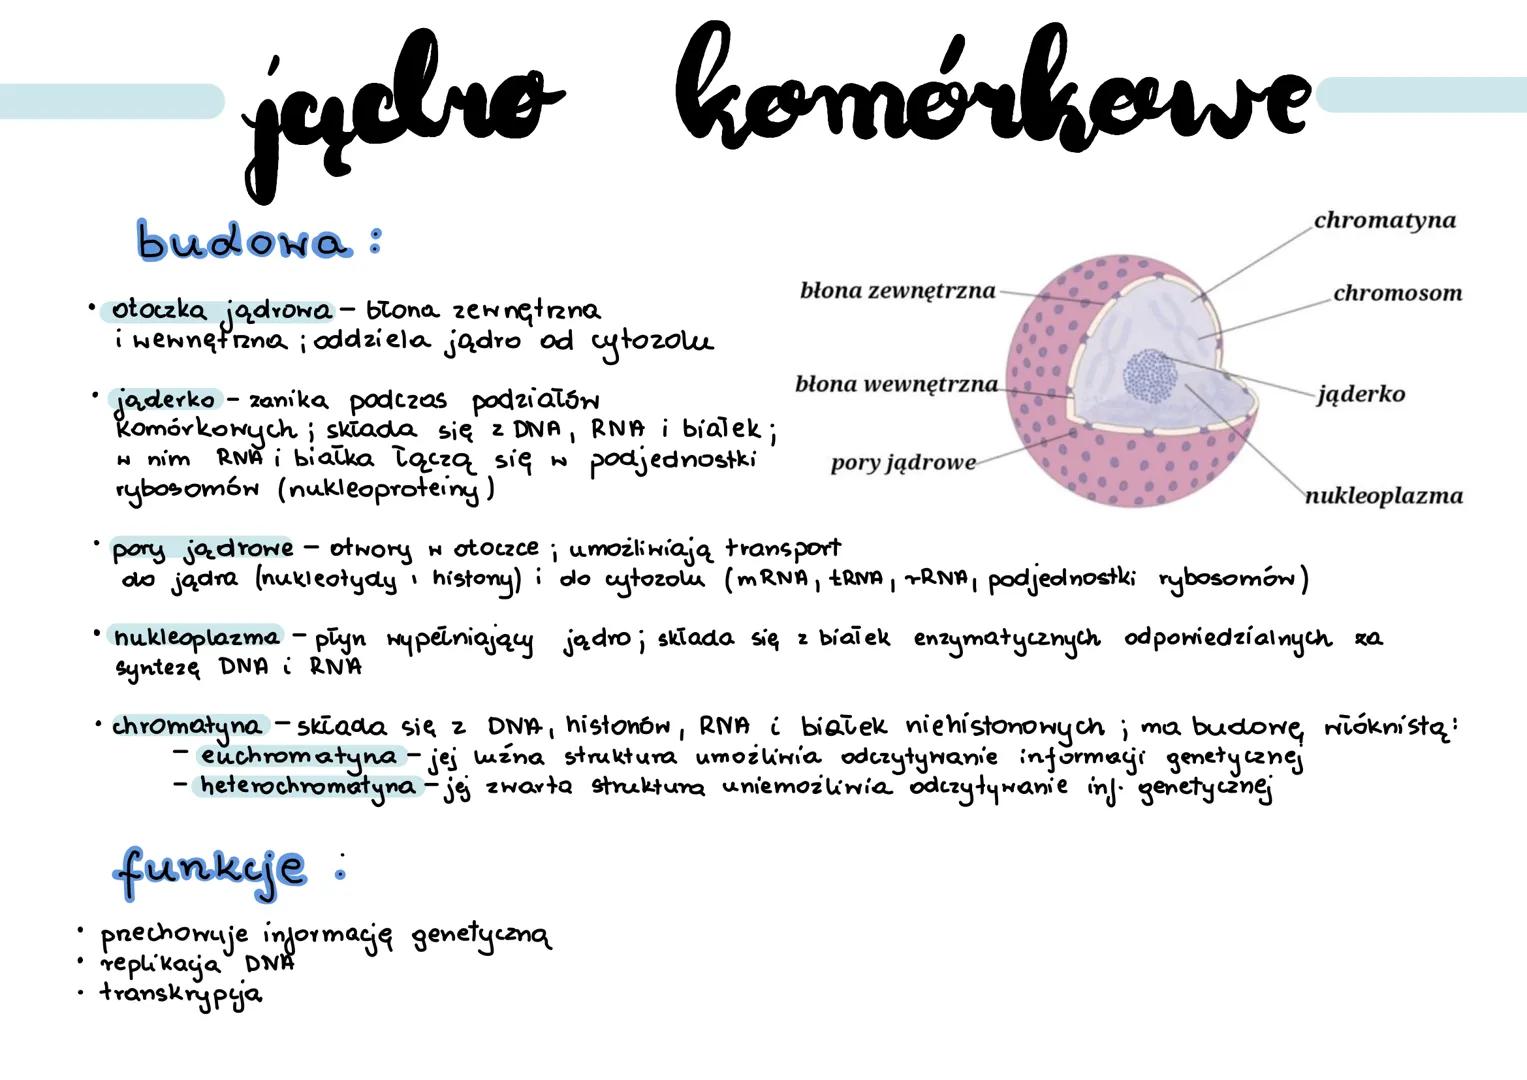 jądro komórkowe
budowa :
• otoczka jądrowa – błona zewnętrzna
i wewnętrzna ; oddziela jądro od cytozolu
• jąderko – zanika podczas podziałów
komórkowych ; składa się z DNA, RNA i białek ;
w nim RNA i białka łączą się w podjednostki
rybosomów (nukleoproteiny)
chromatyna
błona zewnętrzna
chromosom
błona wewnętrzna
jąderko
pory jądrowe
nukleoplazma
• pory jądrowe – otwory w otoczce ; umożliwiają transport
do jądra (nukleotydy i histony) i do cytozolu (mRNA, tRNA, rRNA, podjednostki rybosomów)
• nukleoplazma – płyn wypełniający jądro ; składa się z białek enzymatycznych odpowiedzialnych za
syntezę DNA i RNA
• chromatyna – składa się z DNA, histonów, RNA i białek niehistonowych ; ma budowę włóknistą:
– euchromatyna – jej luźna struktura umożliwia odczytywanie informacji genetycznej
– heterochromatyna – jej zwarta struktura uniemożliwia odczytywanie inf. genetycznej
funkcje :
• przechowuje informację genetyczną
• replikacja DNA
• transkrypcja